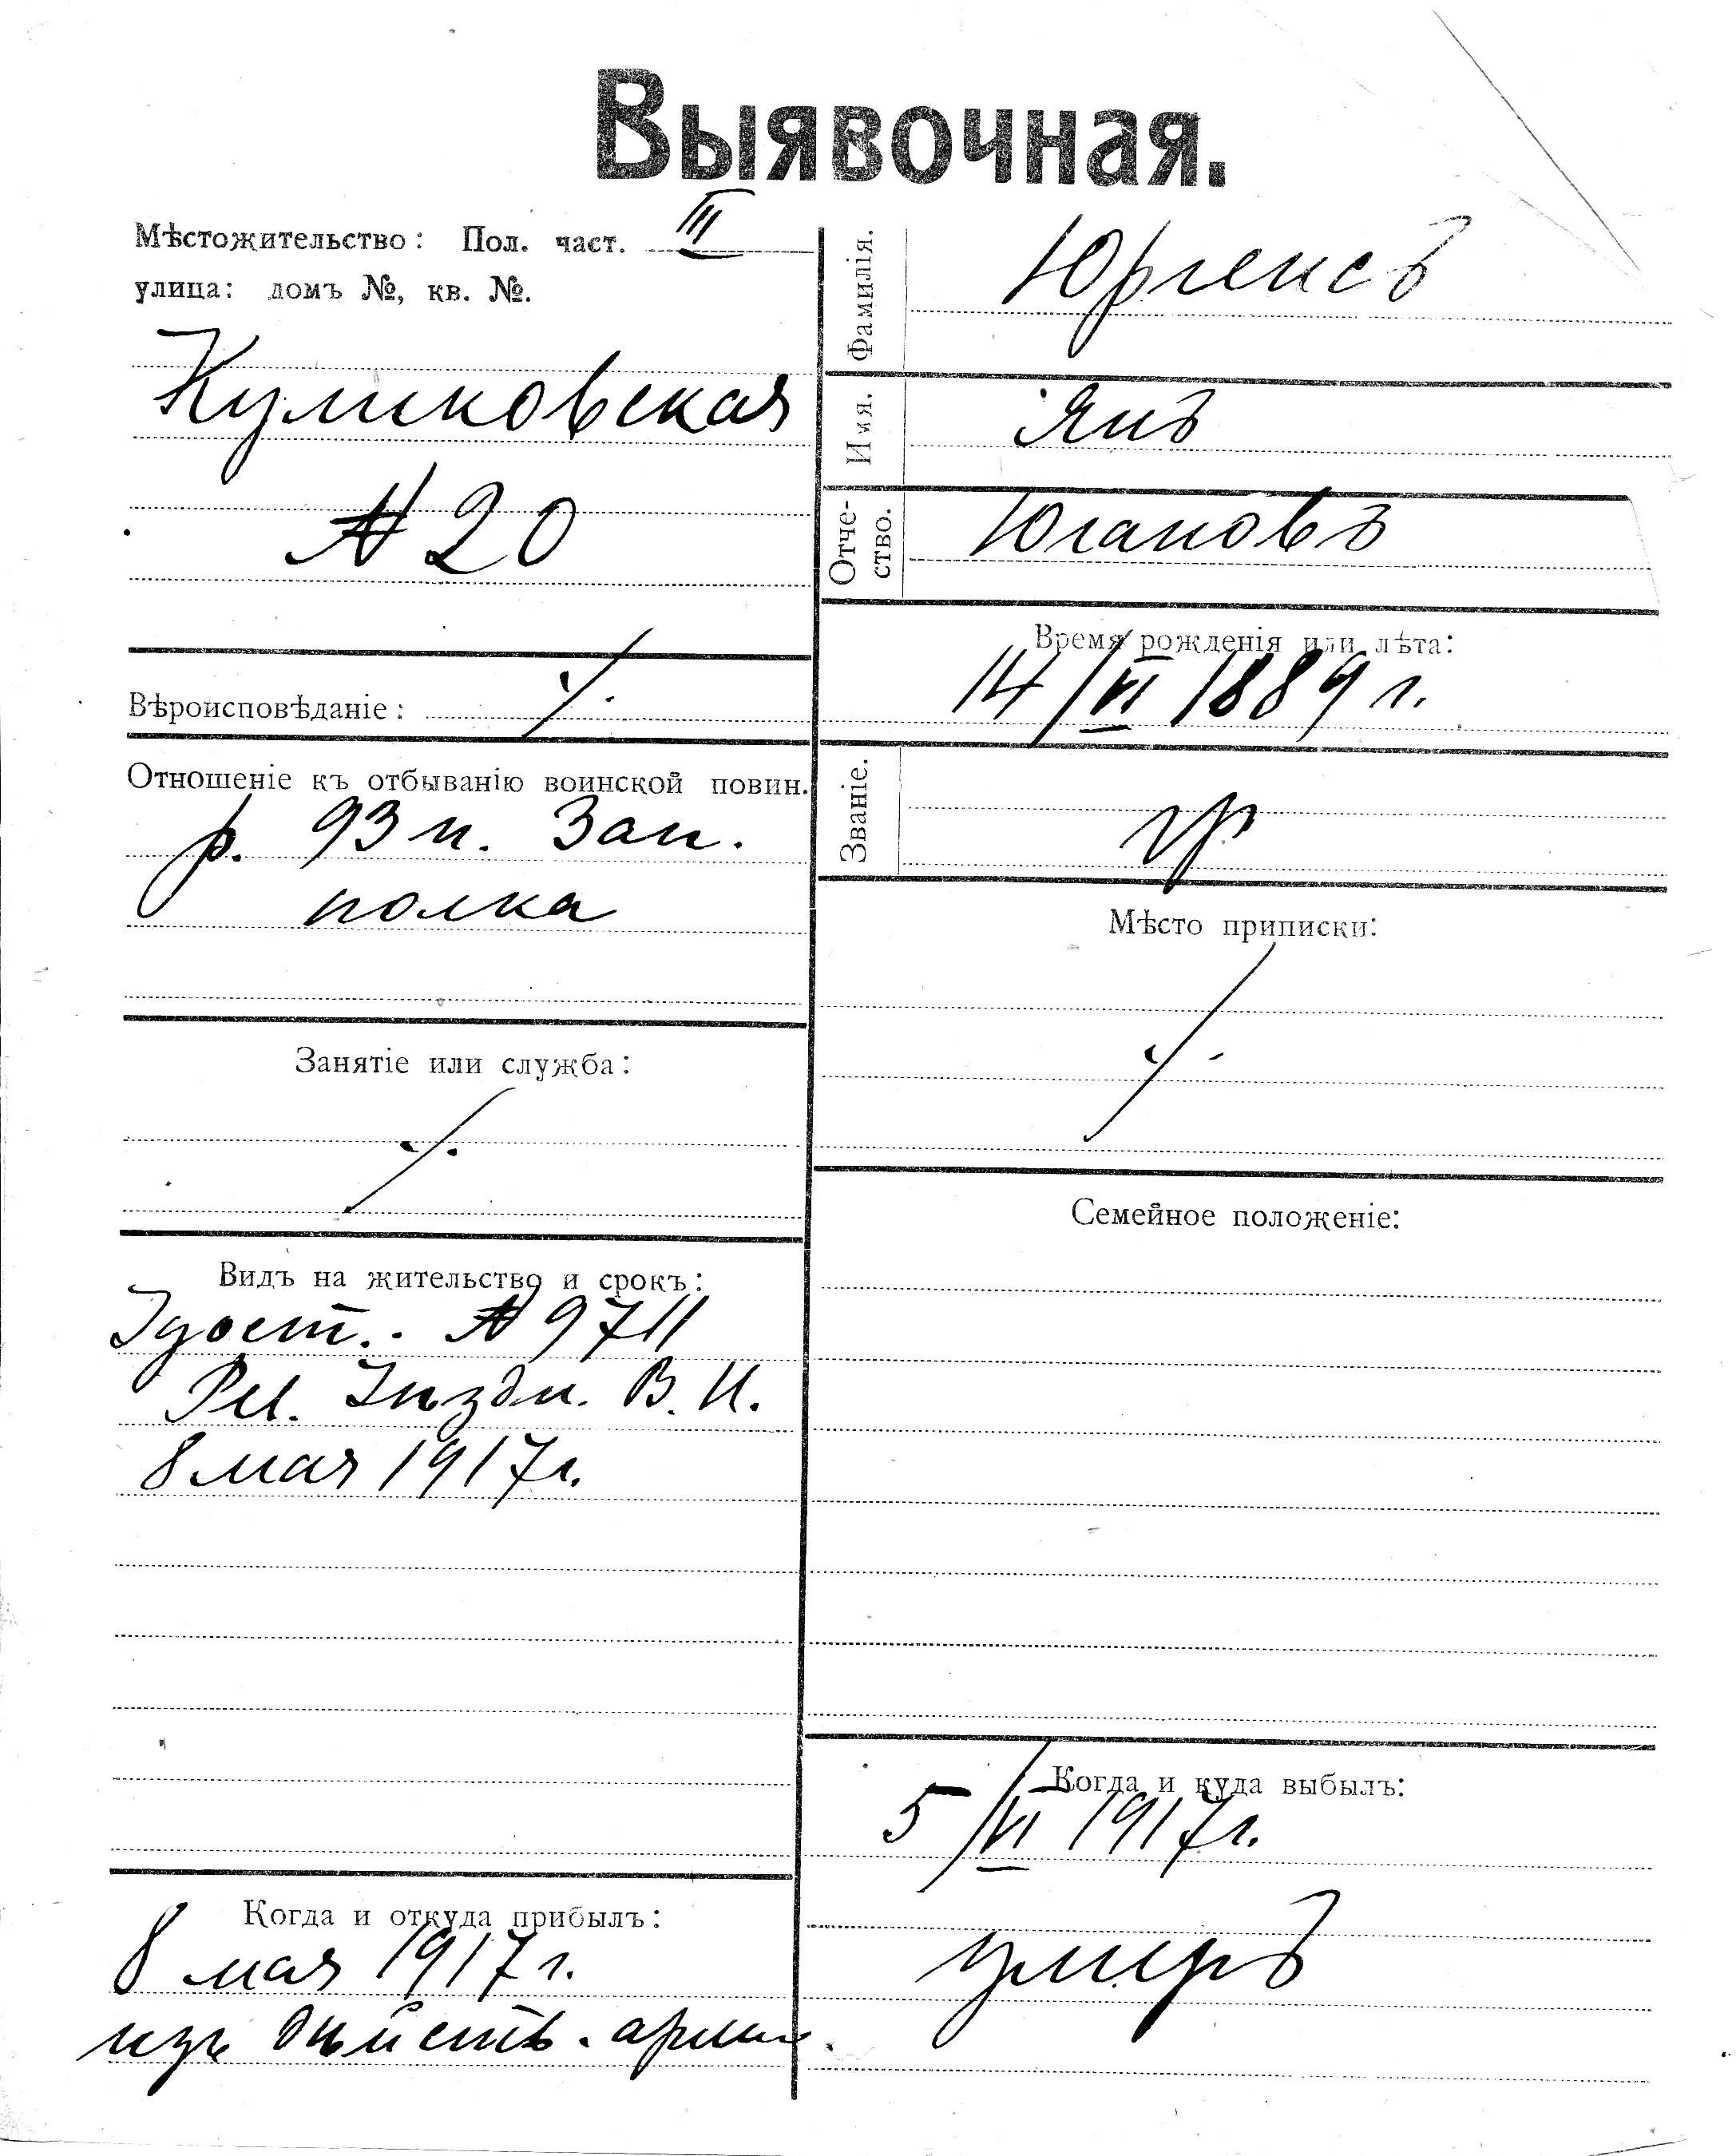 Выявочная.
Мѣстожительство: Пол. част. III
улица: домъ №, кв. №.
Куликовская
№ 20
Вѣроисповѣданіе:
Отношеніе къ отбыванію воинской повин.
р. 93 п. Зап.
полка
Занятіе или служба:
Видъ на жительство и срокъ:
Удост. № 9711
8 мая 1917 г.
Когда и откуда прибылъ:
8 мая 1917 г.
изъ дѣйств. арміи.
Фамилія.
Юргенсъ
Имя.
Янъ
Отче-
ство.
Югановъ
Время рожденія или лѣта:
14/VI 1889 г.
Званіе.
Мѣсто приписки:
Семейное положеніе:
Когда и куда выбылъ:
5/VI 1917 г.
умеръ